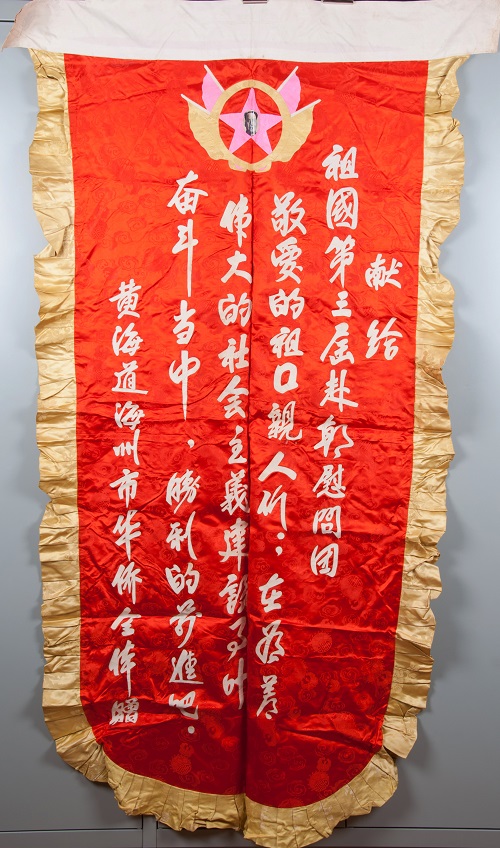 献给
祖國第三屆赴朝慰問团
敬爱的祖囗親人们；在为着
伟大的社会主義建設事业
奋斗当中，勝利的前進吧．
黄海道海州市华侨全体贈